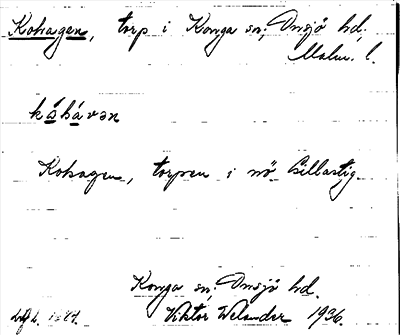 Kohagen, torp i Konga sn; Onsjö hd,
Malm. l.
kåhávən
Kohagen, torpen i nö
Konga sn; Onsjö hd.
Viktor Welander 1936.